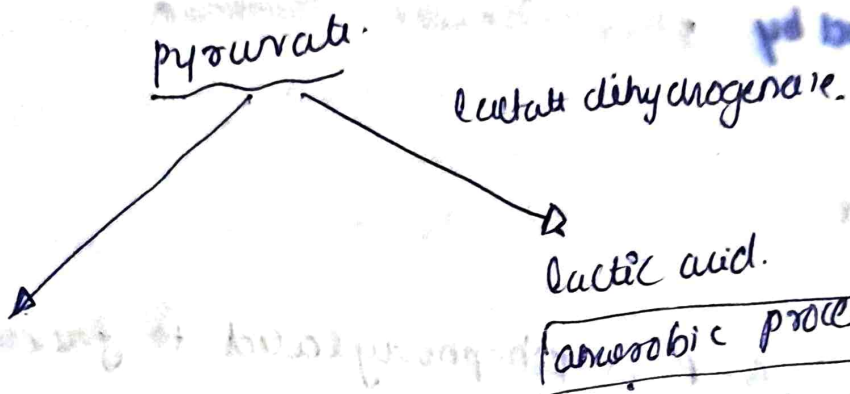 pyruvate.
lactate dihydrogenase.
lactic acid.
anaerobic proce